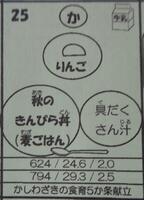 25
か
牛乳
りんご
秋の
きんぴら丼
(麦ごはん)
具だく
さん汁
624 / 24.6 / 2.0
794 / 29.3 / 2.5
かしわざきの食育5か条献立